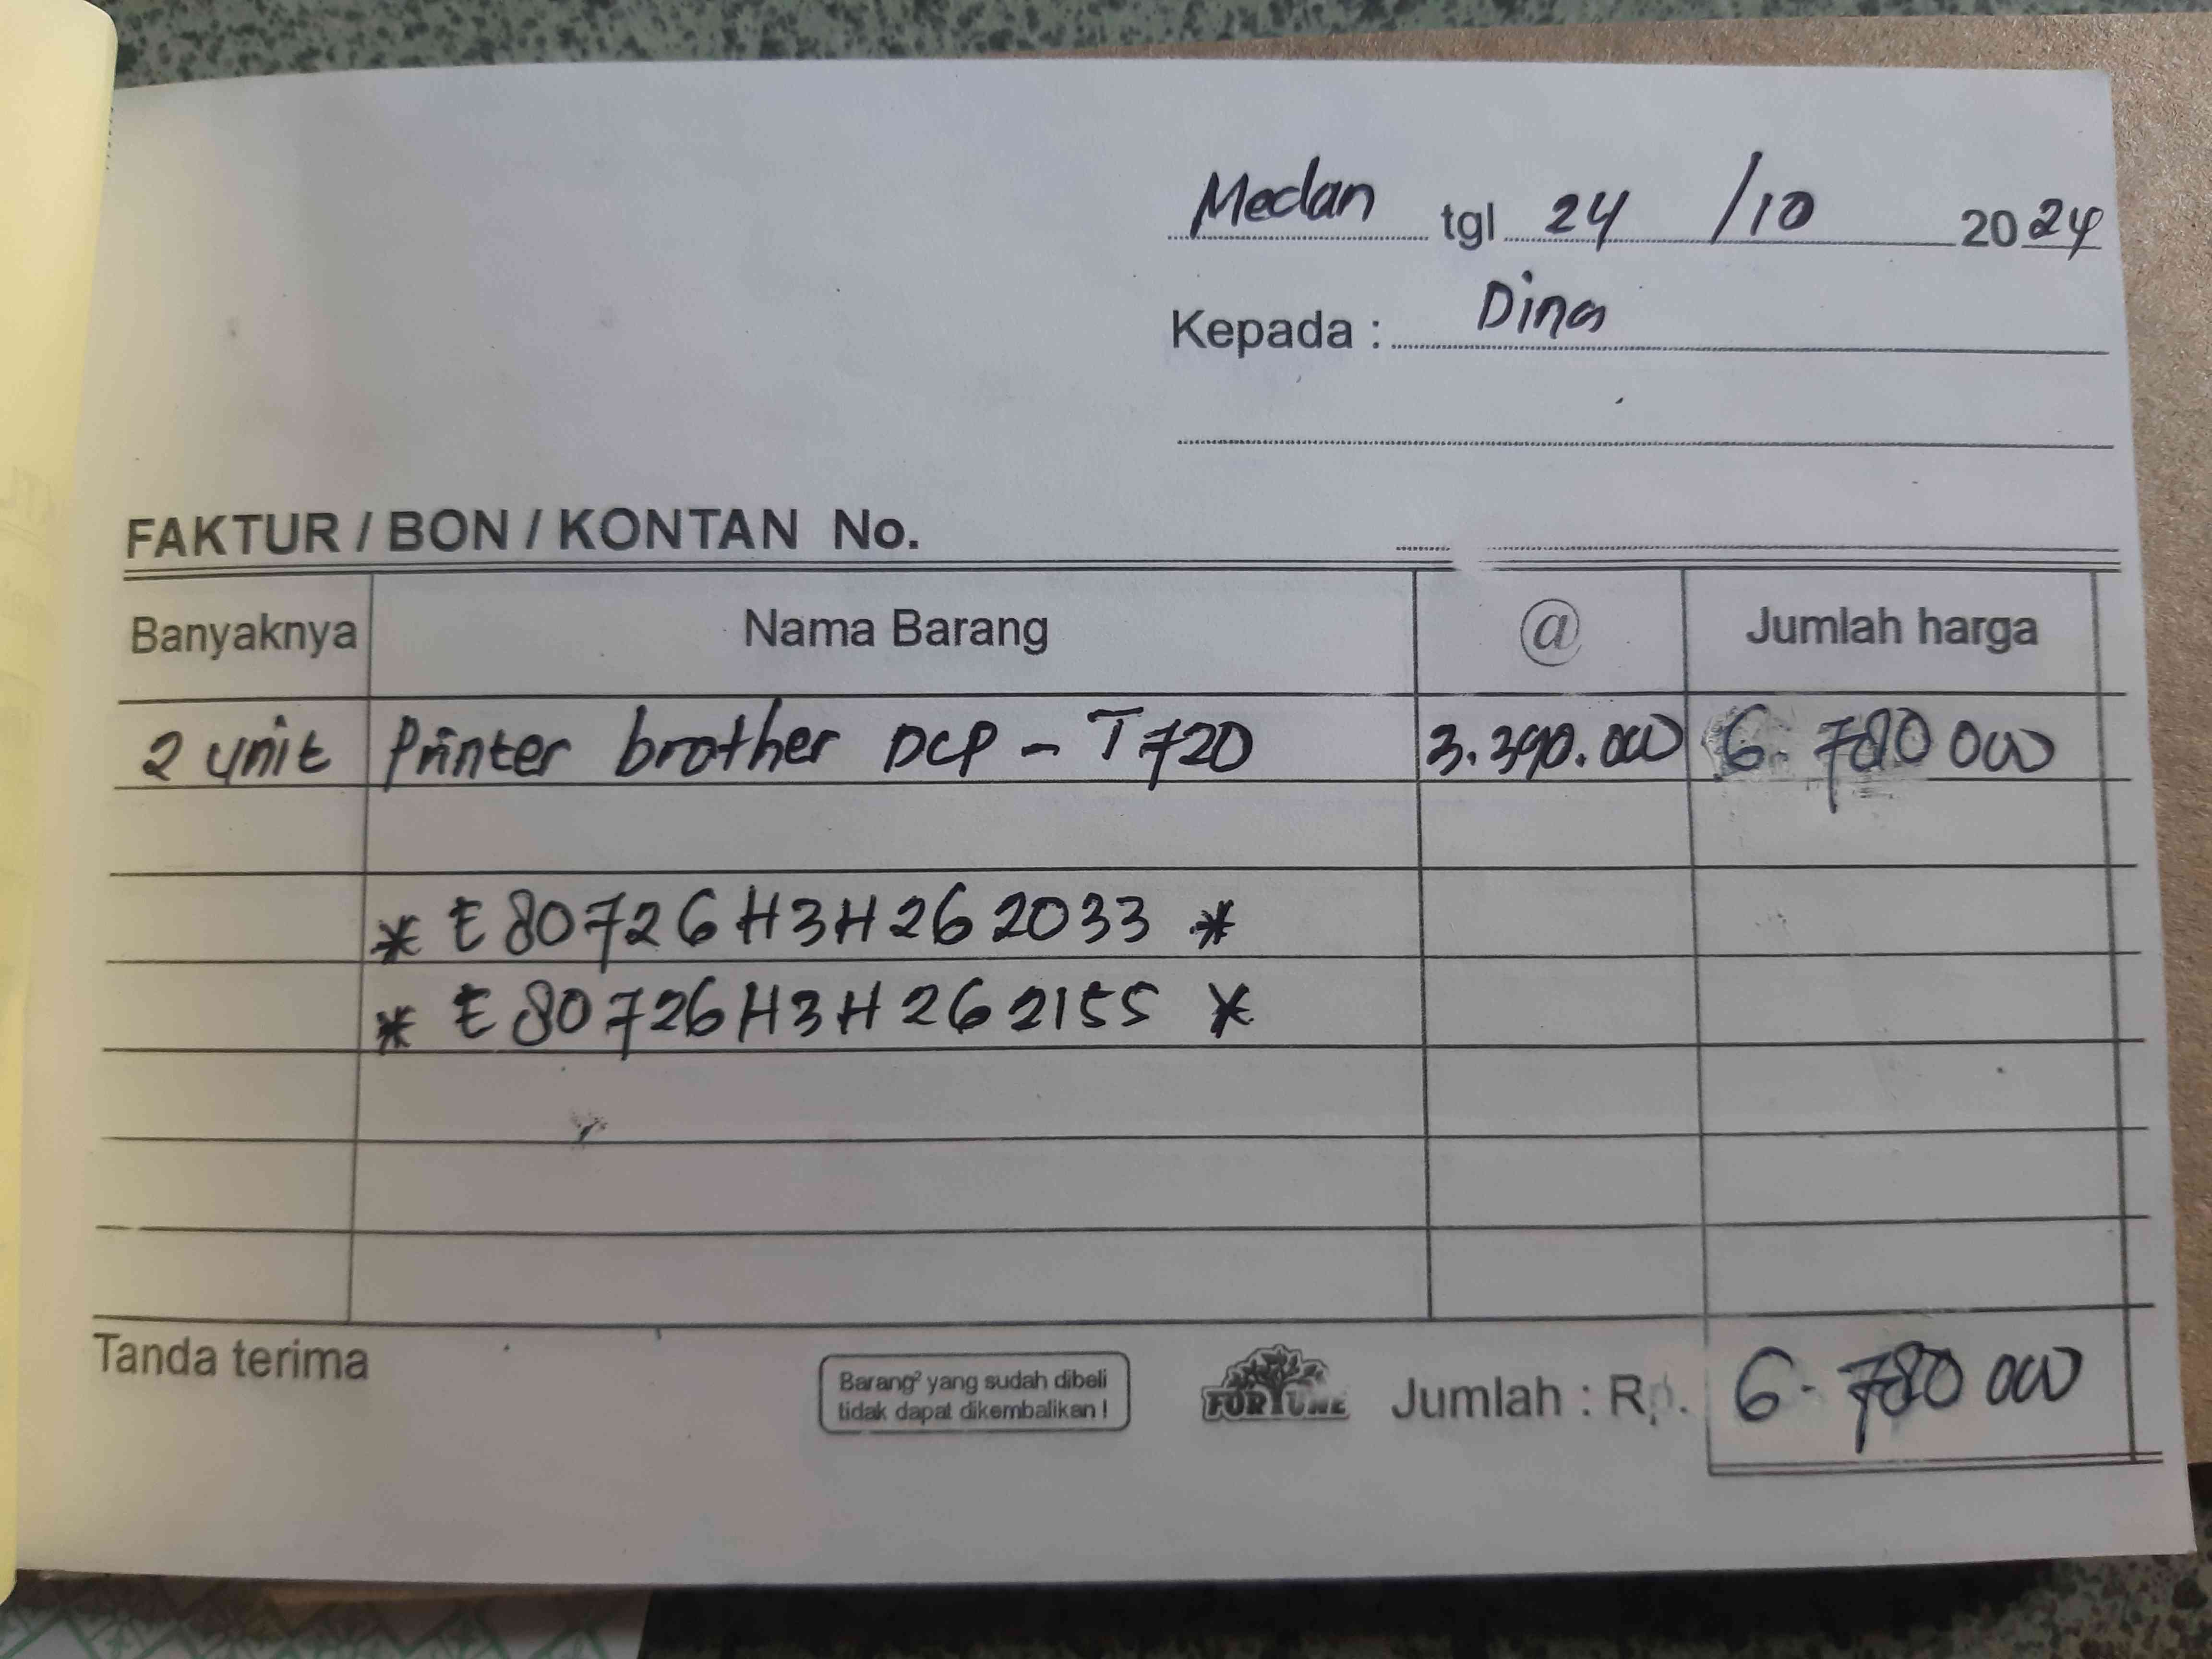 Medan tgl 24 /10 2024
Kepada : Dina
FAKTUR / BON / KONTAN No.
Banyaknya Nama Barang @ Jumlah harga
2 unit Printer brother DCP - T720 3.390.000 6.780 000
* E80726H3H262033 *
* E80726H3H262155 *
Tanda terima
Barang² yang sudah dibeli
tidak dapat dikembalikan !
FORTUNE
Jumlah : Rp. 6.780 000